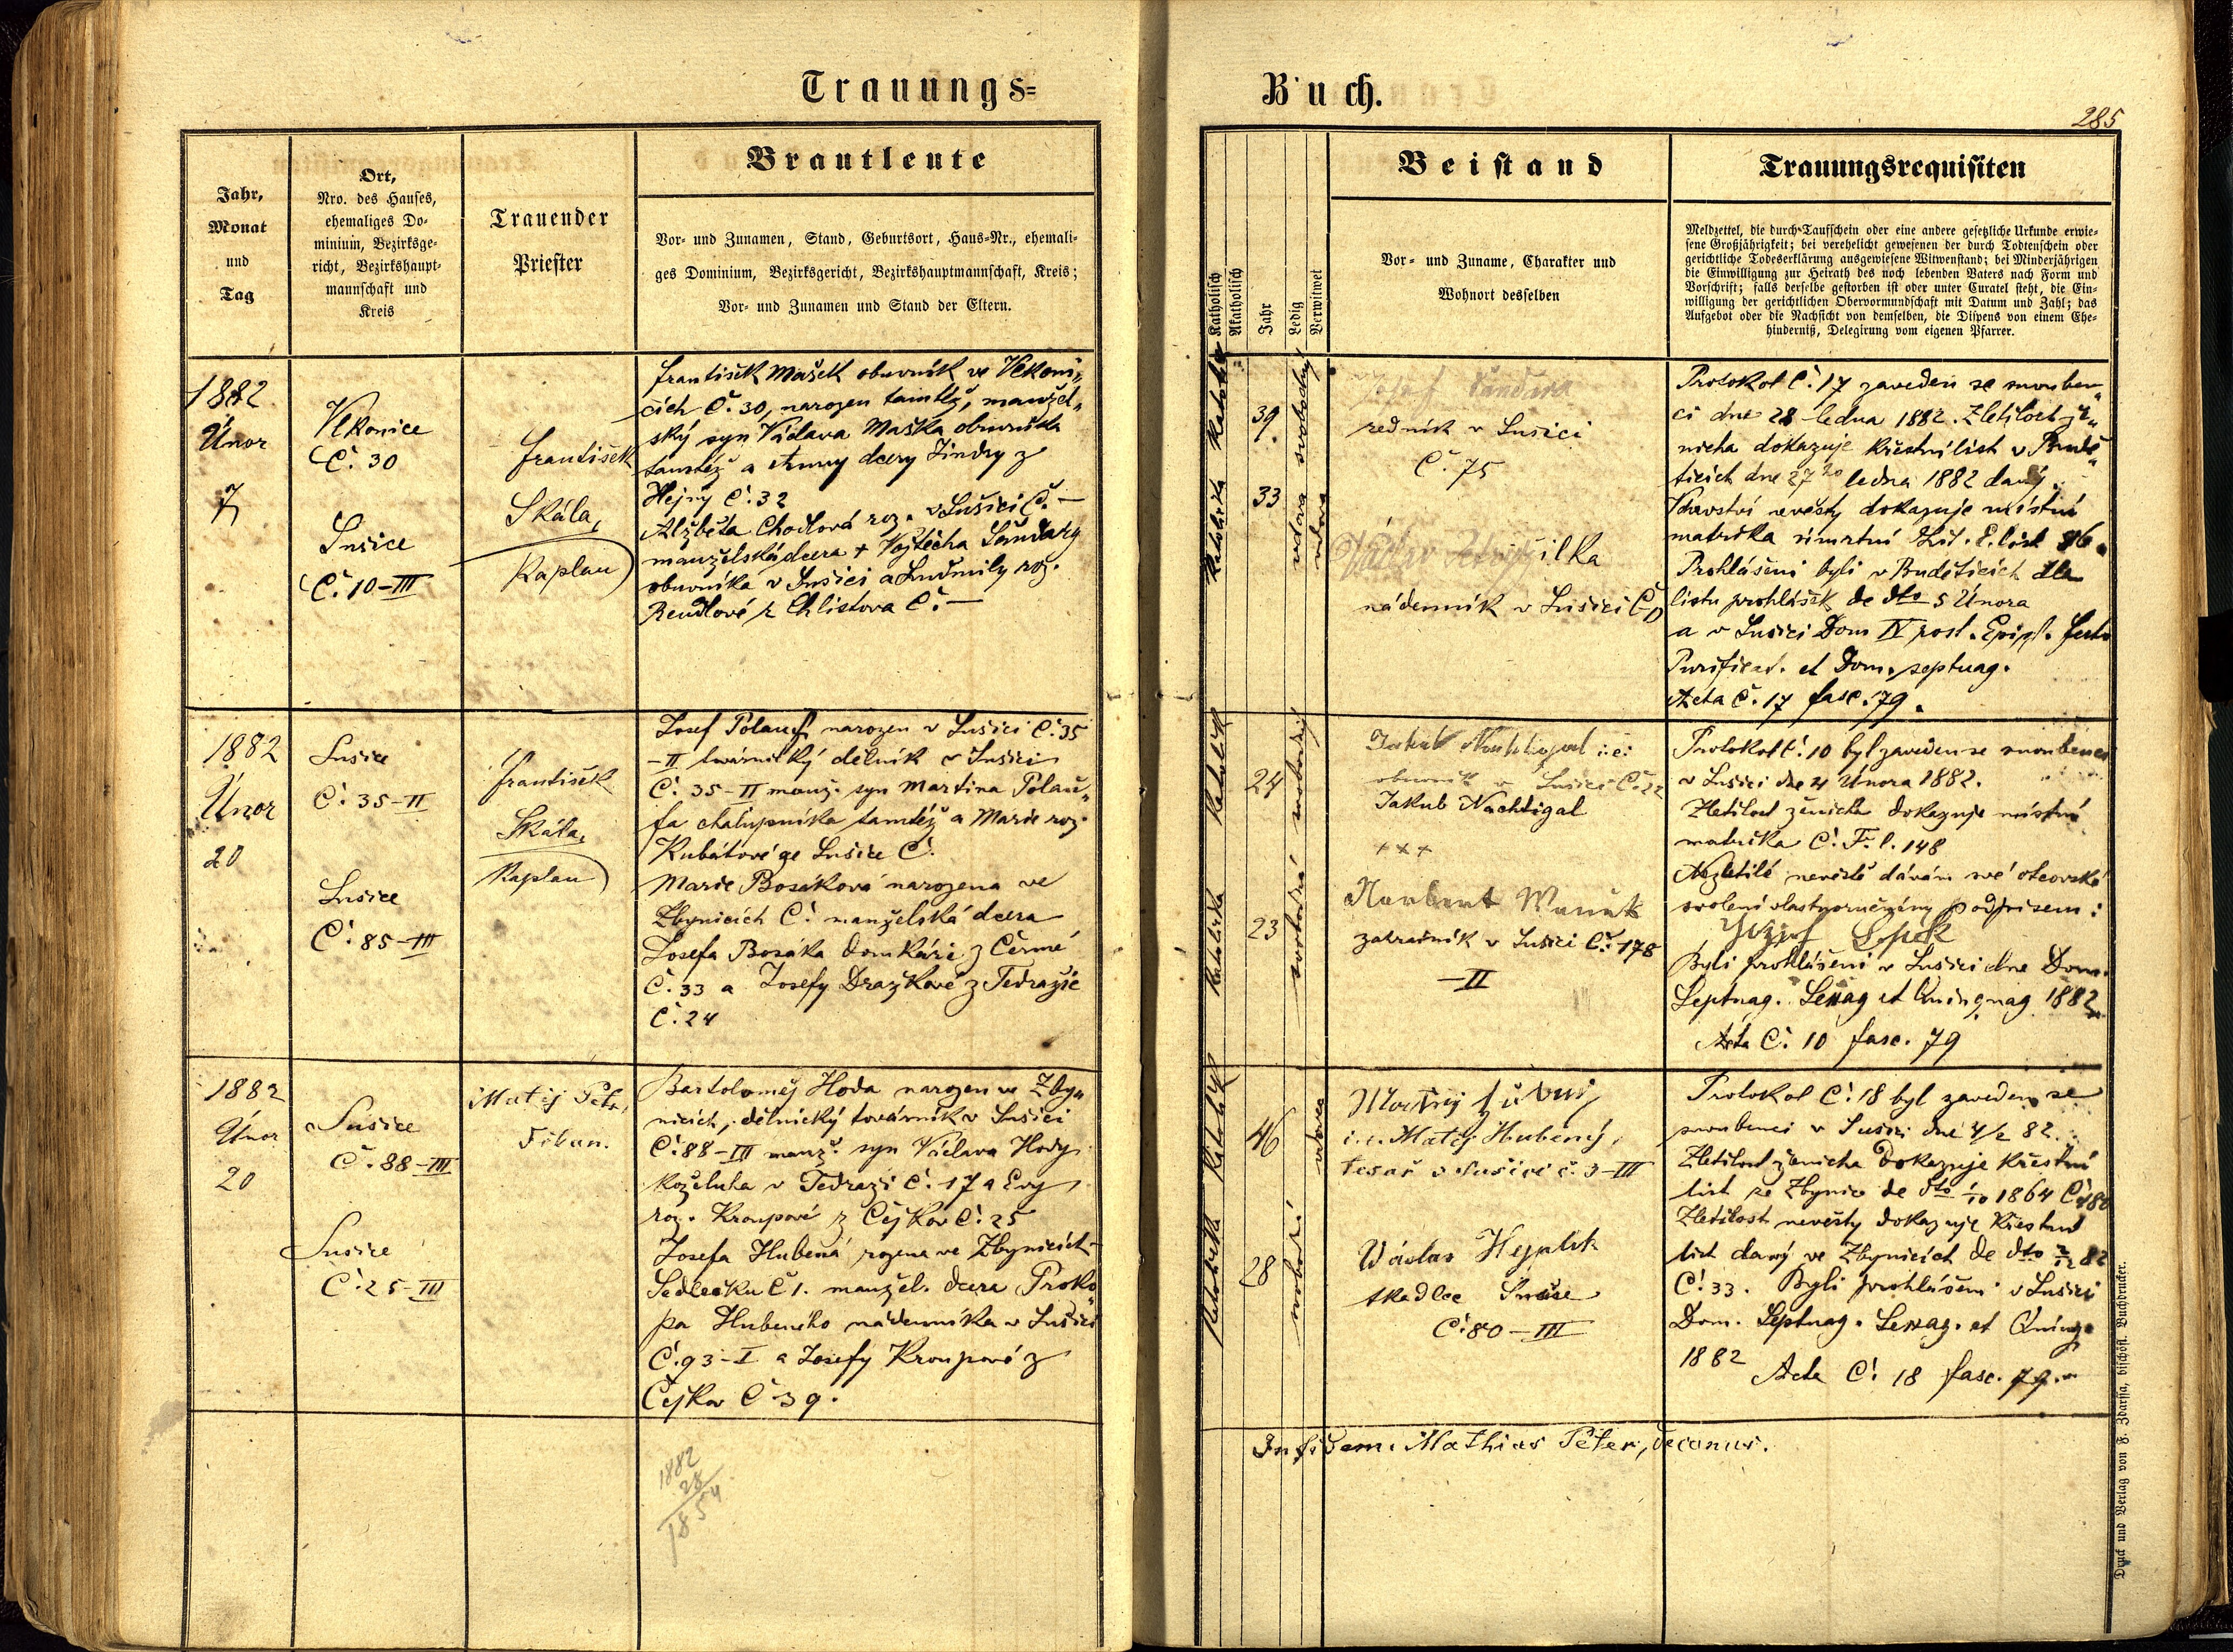 Trauungs=
Buch.
285
Jahr,
Monat
und
Tag
Ort,
Nro. des Hauses,
ehemaliges Do-
minium, Bezirksge-
richt, Bezirkshaupt-
mannschaft und
Kreis
Trauender
Priester
Brautleute
Vor- und Zunamen, Stand, Geburtsort, Haus-Nr., ehemali-
ges Dominium, Bezirksgericht, Bezirkshauptmannschaft, Kreis;
Vor- und Zunamen und Stand der Eltern.
Katholisch
Akatholisch
Jahr
Ledig
Verwitwet
Beistand
Vor- und Zuname, Charakter und
Wohnort desselben
Trauungsrequisiten
Meldzettel, die durch Taufschein oder eine andere gesetzliche Urkunde erwie-
sene Großjährigkeit; bei verehelicht gewesenen der durch Todtenschein oder
gerichtliche Todeserklärung ausgewiesene Witwenstand; bei Minderjährigen
die Einwilligung zur Heirath des noch lebenden Vaters nach Form und
Vorschrift; falls derselbe gestorben ist oder unter Curatel steht, die Ein-
willigung der gerichtlichen Obervormundschaft mit Datum und Zahl; das
Aufgebot oder die Nachsicht von demselben, die Dispens von einem Ehe-
hinderniß, Delegirung vom eigenen Pfarrer.
1882
Únor
7
Vlkonice
Č. 30
Sušice
Č. 10-III
František
Skála,
Kaplan
František Mašek obuvník ve Vlkoni„
cích Č. 30, narozen tamtéž, manžel„
ský syn Václava Maška obuvníka
tamtéž a Anny dcery Jindry z
Hejný Č. 32
Alžběta Chodlová roz. v Sušici Č. —
manželská dcera + Vojtěcha Šandary
obuvníka v Sušici a Ludmily roz.
Rendlové z Chlistova Č. —
katolík
katolička
39
33
svobodný
vdova
Josef Šandara
řezník v Sušici
Č. 75
Václav Petržilka
nádenník v Sušici Č.
Protokol Č. 17 zaveden se snouben„
ci dne 28 ledna 1882. Zletilost že„
nicha dokazuje křestní list v Budě„
ticích dne 27ho ledna 1882 daný.
Vdovství nevěsty dokazuje místní
matrika úmrtní Lit. E. list 86.
Prohlášeni byli v Budětících dle
listu prohlášek de dto 5 Února
a v Sušici Dom IV post. Epiph. festo
Purificat. et Dom. septuag.
Acta Č. 17 fasc. 79.
1882
Únor
20
Sušice
Č. 35-II
Sušice
Č. 85-III
František
Skála,
Kaplan
Josef Polauf, narozen v Sušici Č. 35
-II továrnický dělník v Sušici
Č. 35-II manž. syn Martina Polau„
fa chalupníka tamtéž a Marie roz.
Kubátové ze Sušice Č.
Marie Bosáková narozena ve
Zbynicích Č. manželská dcera
Josefa Bosáka domkáře z Černé
Č. 33 a Josefy Dražkové z Tedražic
Č. 24
katolík
katolička
24
23
svobodný
svobodná
Jakub Nachtigal i.e.
obuvník v Sušici Č. 22
Jakub Nachtigal
+++
Norbert
zahradník v Sušici Č. 178
-II
Protokol Č. 10 byl zaveden se snoubenci
v Sušici dne 4 Února 1882.
Zletilost ženicha dokazuje místní
matrika Č. F. l. 148
Nezletilé nevěstě dávám své otcovské
svolení vlastnoručným podpisem:
Byli prohlášeni v Sušici dne Dom.
Septuag. Sexag et Quinquag 1882
Acta Č. 10 fasc. 79
1882
Únor
20
Sušice
Č. 88-III
Sušice
Č. 25-III
Matěj Petr,
Děkan.
Bartoloměj Hoda narozen ve Zby„
nicích, dělnický továrník v Sušici
Č. 88-III manž. syn Václava Hody
koželuha v Tedraži Č. 17 a Evy
roz. Kroupové z Čejkov Č. 25
Josefa Hubená rozena ve Zbynicích-
Sedlečku Č 1. manžel. dcera Proko„
pa Hubeného nádenníka v Sušici
Č. 93-I a Josefy Kroupové z
Čejkov Č 39.
katolík
katolička
46
28
vdovec
svobodná
i.e. Matěj Hubený,
tesař v Sušici č. 3-III
Václav Hejplík
tkadlec Sušice
Č. 80-III
Protokol Č. 18 byl zaveden se
snoubenci v Sušici dne 4/2 82.
Zletilost ženicha dokazuje křestní
list ze Zbynic de dto 1/10 1864 Č. 180
Zletilost nevěsty dokazuje křestní
list daný ve Zbynicích de dto 82
Č. 33. Byli prohlášeni v Sušici
Dom. Septuag. Sexag. et Quinqu
1882
Acta Č. 18 fasc. 79.
In fidem. Mathias Peter, Decanus.
1882
28
1854
Druck und Verlag von F. Zdarssa, bischöfl. Buchdrucker.